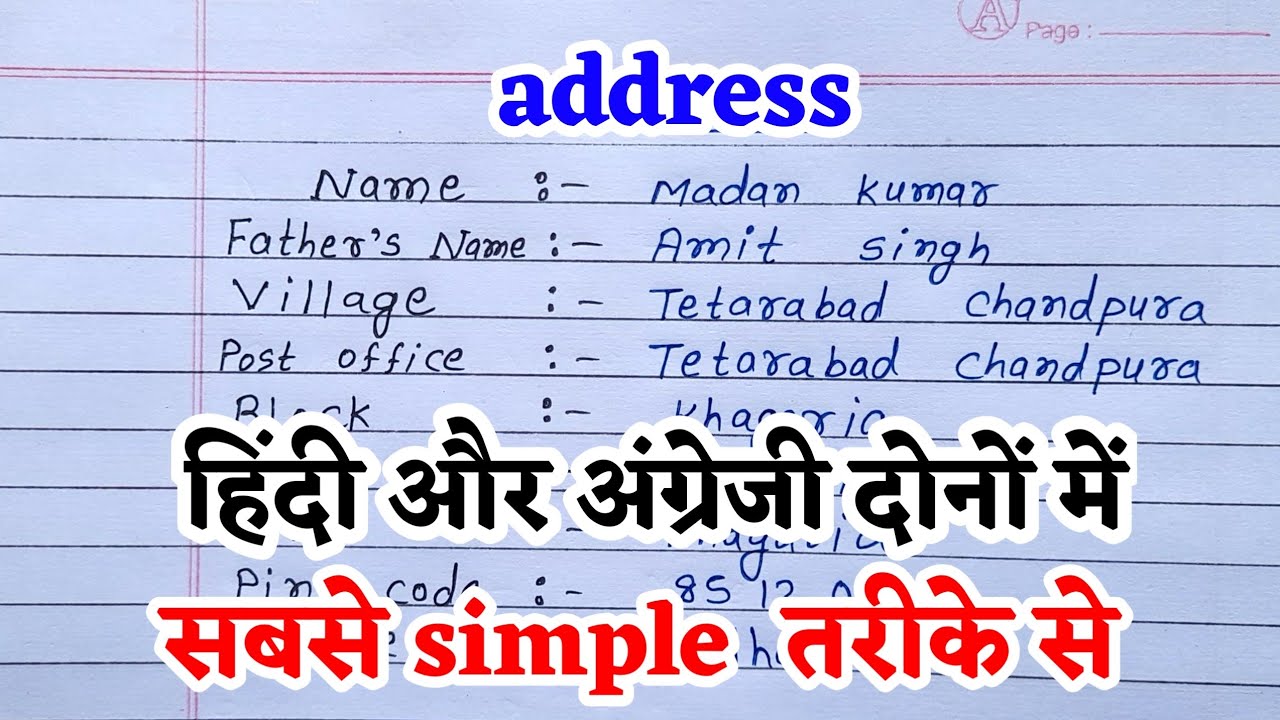 Page :
address
Name :- Madan Kumar
Father's Name :- Amit Singh
Village :- Tetarabad Chandpura
Post office :- Tetarabad Chandpura
Block :- Khagaria
हिंदी और अंग्रेजी दोनों में
Pin code :-
सबसे simple तरीके से